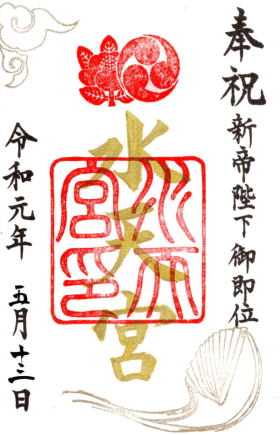 奉祝
新帝陛下御即位
水天宮
水天宮印
令和元年
五月十三日